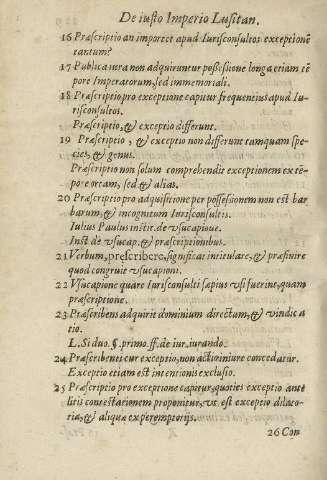 De iusto Imperio Lusitan.
16 Præscriptio an importet apud Iurisconsultos exceptionē
tantum?
17 Publica iura non adquiruntur possessione longa etiam tē
pore Imperatorum, sed immemoriali.
18 Præscriptio pro exceptione capitur frequentius apud Iu-
risconsultos.
Præscriptio, & exceptio differunt.
19 Præscriptio, & exceptio non differunt tamquam spe-
cies, & genus.
Præscriptio non solum comprehendit exceptionem ex tē-
pore ortam, sed & alias.
20 Præscriptio pro adquisitione per possessionem non est bar
barum, & incognitum Iurisconsultis.
Iulius Paulus instit. de vsucapione.
Inst. de vsucap. & præscriptionibus.
21 Verbum, prescribere, significat intitulare, & præfinire
quod congruit vsucapioni.
22 Vsucapione quare Iurisconsulti sæpius vsi fuerint, quam
præscriptione.
23 Præscribens adquirit dominium directum, & vindica
tio.
L. Si duo. §. primo. ff. de iur. iurando.
24 Præscribenti cur exceptio, non actio iniure concedatur.
Exceptio etiam est intentionis exclusio.
25 Præscriptio pro exceptione capitur, quoties exceptio ante
litis contestationem proponitur, vt est exceptio dilato-
ria, & aliquæ ex peremptorijs.
26 Con